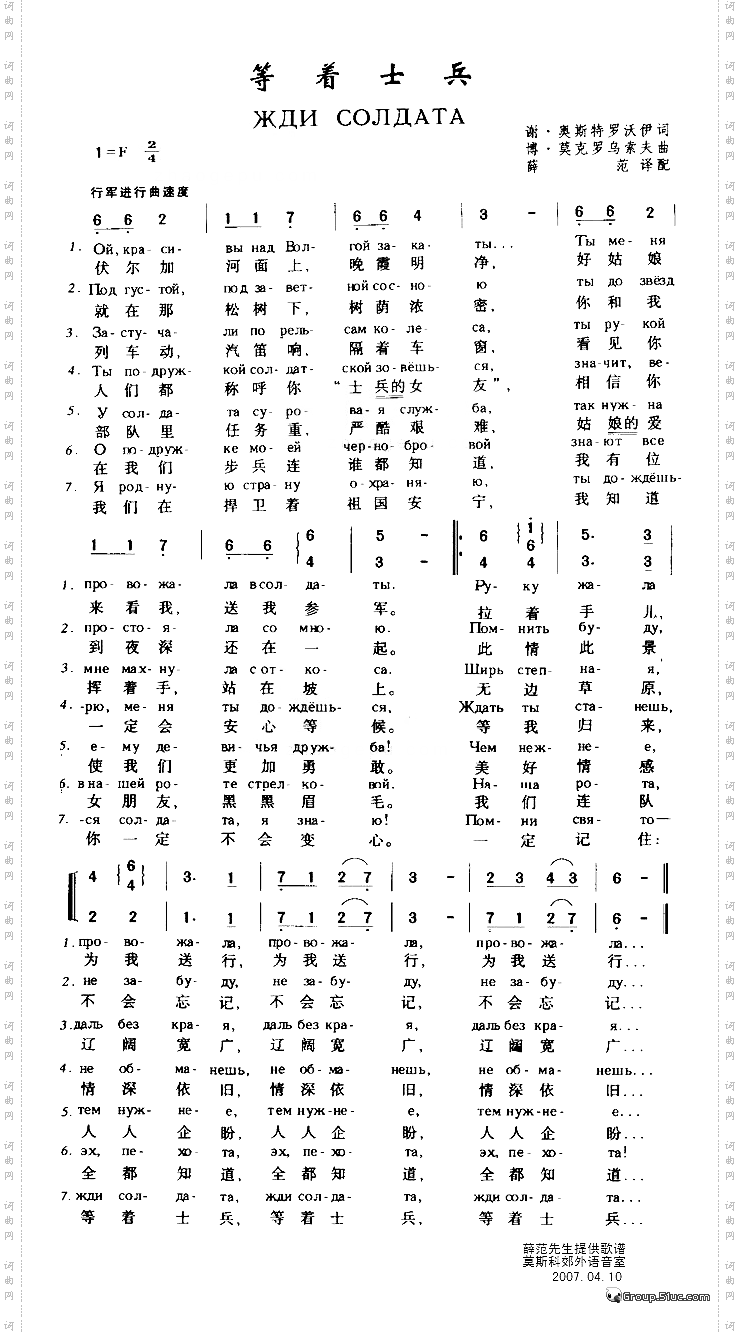 等着士兵
ЖДИ СОЛДАТА
谢·奥斯特罗沃伊词
1=F 2/4
博·莫克罗乌索夫曲
薛 范 译配
行军进行曲速度
6 6 2 | 1 1 7 | 6 6 4 | 3 - | 6 6 2
1. Ой, кра- си- вы над Вол- гой за- ка- ты... Ты ме- ня
伏 尔 加 河 面 上, 晚 霞 明 净, 好 姑 娘
2. Под гус- той, под за- вет- ной сос- но- ю ты до звёзд
就 在 那 松 树 下, 树 荫 浓 密, 你 和 我
3. За- сту- ча- ли по рель- сам ко- ле- са, ты ру- кой
列 车 动, 汽 笛 响, 隔 着 车 窗, 看 见 你
4. Ты по- друж- кой сол- дат- ской зо- вёшь- ся, зна- чит, ве-
人 们 都 称 呼 你 “士 兵的 女 友”, 相 信 你
5. У сол- да- та су- ро- ва- я служ- ба, так нуж- на
部 队 里 任 务 重, 严 酷 艰 难, 姑 娘的 爱
6. О по- друж- ке мо- ей чер- но- бро- вой зна- ют все
在 我 们 步 兵 连 谁 都 知 道, 我 有 位
7. Я род- ну- ю стра- ну о- хра- ня- ю, ты до- ждёшь-
我 们 在 捍 卫 着 祖 国 安 宁, 我 知 道
1 1 7 | 6 6 6 4 | 5 - 3 - 6 4 1 6 4 | 5. 3 3. 3
1. про- во- жа- ла в сол- да- ты. Ру- ку жа- ла
来 看 我, 送 我 参 军。 拉 着 手 儿,
2. про- сто- я- ла со мно- ю. Пом- нить бу- ду,
到 夜 深 还 在 一 起。 此 情 此 景
3. мне мах- ну- ла с от- ко- са. Ширь степ- на- я,
挥 着 手, 站 在 坡 上。 无 边 草 原,
4. -рю, ме- ня ты до- ждёшь- ся, Ждать ты ста- нешь,
一 定 会 安 心 等 候。 等 我 归 来,
5. е- му де- ви- чья друж- ба! Чем неж- не- е,
使 我 们 更 加 勇 敢。 美 好 情 感
6. в на- шей ро- те стрел- ко- вой. На- ша ро- та,
女 朋 友, 黑 黑 眉 毛。 我 们 连 队
7. -ся сол- да- та, я зна- ю! Пом- ни свя- то—
你 一 定 不 会 变 心。 一 定 记 住:
4 6 4 | 3. 1 | 7 1 2 7 | 3 - | 2 3 4 3 | 6 -
2 2 | 1. 1 | 7 1 2 7 | 3 - | 7 1 2 7 | 6 -
1. про- во- жа- ла, про- во- жа- ла, про- во- жа- ла...
为 我 送 行, 为 我 送 行, 为 我 送 行...
2. не за- бу- ду, не за- бу- ду, не за- бу- ду...
不 会 忘 记, 不 会 忘 记, 不 会 忘 记...
3. даль без кра- я, даль без кра- я, даль без кра- я...
辽 阔 宽 广, 辽 阔 宽 广, 辽 阔 宽 广...
4. не об- ма- нешь, не об- ма- нешь, не об- ма- нешь...
情 深 依 旧, 情 深 依 旧, 情 深 依 旧...
5. тем нуж- не- е, тем нуж- не- е, тем нуж- не- е...
人 人 企 盼, 人 人 企 盼, 人 人 企 盼...
6. эх, пе- хо- та, эх, пе- хо- та, эх, пе- хо- та!
全 都 知 道, 全 都 知 道, 全 都 知 道...
7. жди сол- да- та, жди сол- да- та, жди сол- да- та...
等 着 士 兵, 等 着 士 兵, 等 着 士 兵...
薛范先生提供歌谱
莫斯科郊外语音室
2007.04.10
Group.51uc.com
词曲网